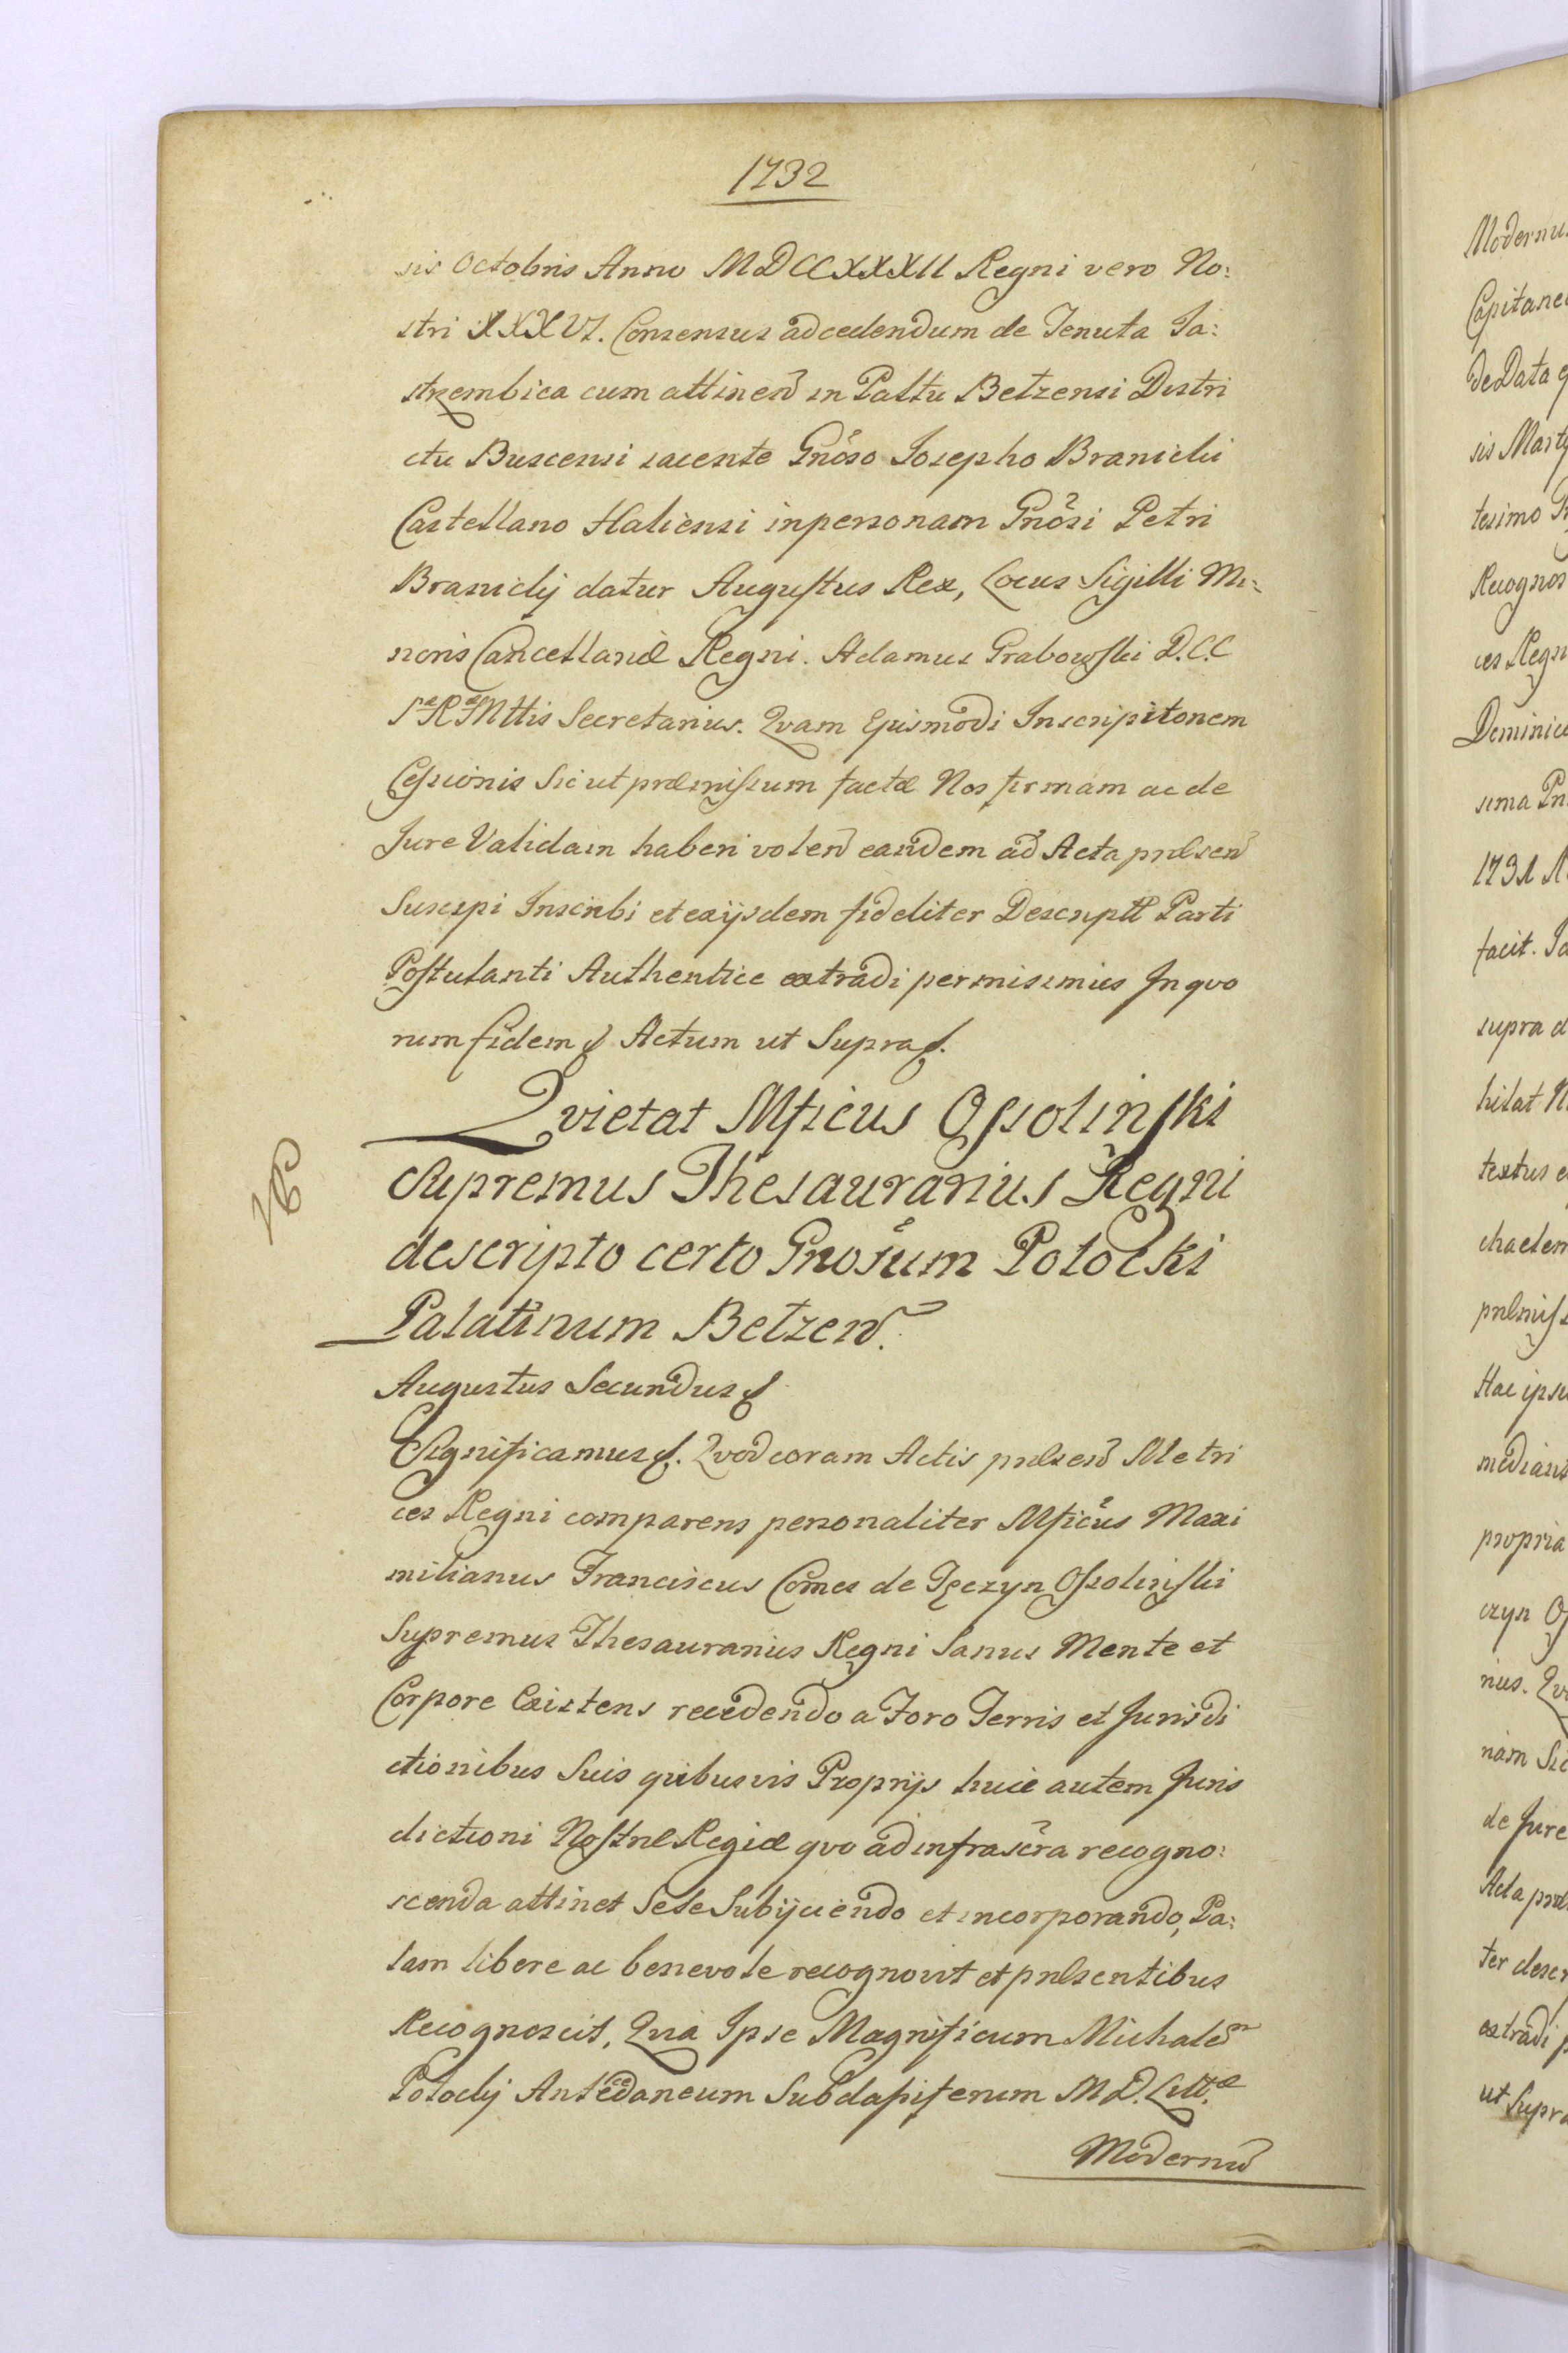 1732
sis Octobris Anno MDCCXXXII Regni vero No:
stri XXXVI. Consensus ad cedendum de Tenuta Ja:
strzembica cum attineñ in Palltu Betzensi Distri
ctu Buscensi iacente Gnoso Josepho Branicki
Castellano Haliciensi in personam Gnosi Petri
Branickij datur Augustus Rex, Locus Sigilli Mi:
noris Cancellariæ Regni. Adamus Grabowski D.C.C
Sæ Ræ Mttis Secretarius. Qvam Ejusmodi Inscriptionem
Cessionis Sic ut præmissum factæ Nos firmam ac de
Jure Validam haberi voleñ eandem ad Acta pnlseñ
Suscipi Inscribi et ex ijsdem fideliter Descriptt Parti
Postulanti Authentice extradi permisimus Jn qvo
rum fidem Actum ut Supra.
Qvietat Mficus Ossolinski
Supremus Thesaurarius Regni
descripto certo Gnosum Potocki
Palatinum Betzeñ.
Augustus Secundus
Significamus. Qvod coram Actis pnlseñ Metri
ces Regni comparens personaliter Mficus Maxi
milianus Franciscus Comes de Tęczyn Ossolinski
Supremus Thesaurarius Regni Sanus Mente et
Corpore Existens recedendo a Foro Terris et Jurisdi
ctionibus Suis qvibusvis Proprijs huic autem Juris
dictioni Nostræ Regiæ qvo ad infrascra recogno:
scenda attinet Sese Subijciendo et incorporando, Pa:
lam libere ac benevole recognovit et pnlsentibus
Recognoscit, Qvia Ipse Magnificum Michalem
Potockij Antecedaneum Subdapiferum M.D. Littæ
Modernũ
Modernu
Capitane
de Data
sis Mart
tesimo
Recognos
ces Regn
Dominic
sima
1731
facit.
supra
hilat
textus

Hac ipsa

propria
czyn
rius.
nam
de Jure
Acta
ter
extradi
ut Supra